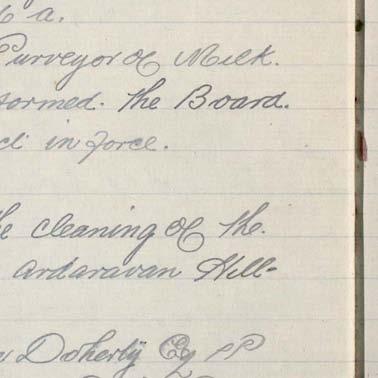 a.
Purveyor of Milk.
formed. The Board.
in force.
the cleaning of the.
Ardaravan Hill-
Doherty Esq PP